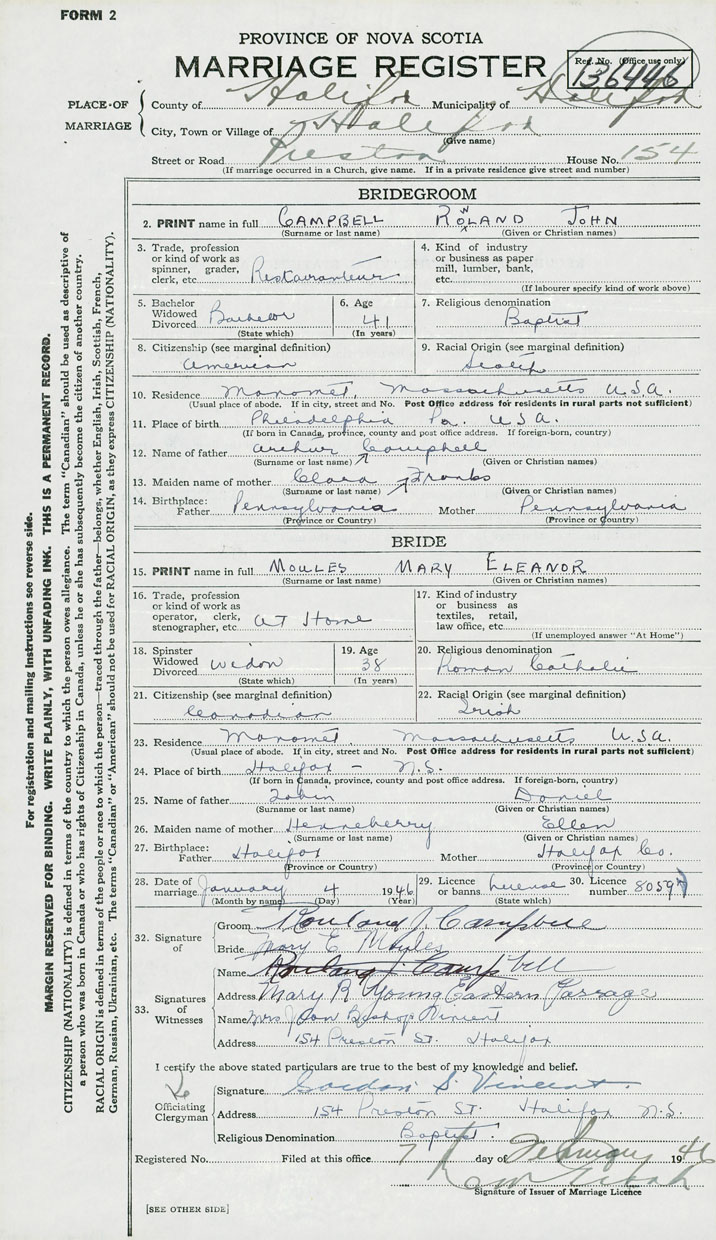 FORM 2
PROVINCE OF NOVA SCOTIA
MARRIAGE REGISTER
Reg. No. (Office use only)
136446
PLACE OF MARRIAGE
County of Halifax Municipality of Halifax
City, Town or Village of Halifax
(Give name)
Street or Road Preston House No. 154
(If marriage occurred in a Church, give name. If in a private residence give street and number)
BRIDEGROOM
2. PRINT name in full CAMPBELL ROWLAND JOHN
(Surname or last name) (Given or Christian names)
3. Trade, profession or kind of work as spinner, grader, clerk, etc. Restauranteur
4. Kind of industry or business as paper mill, lumber, bank, etc.
(If labourer specify kind of work above)
5. Bachelor Widowed Divorced Bachelor
(State which)
6. Age 41
(In years)
7. Religious denomination
Baptist
8. Citizenship (see marginal definition)
American
9. Racial Origin (see marginal definition)
Scotch
10. Residence Manomet, Massachusetts U.S.A.
(Usual place of abode. If in city, street and No. Post Office address for residents in rural parts not sufficient)
11. Place of birth Philadelphia Pa. U.S.A.
(If born in Canada, province, county and post office address. If foreign-born, country)
12. Name of father Arthur Campbell
(Surname or last name) (Given or Christian names)
13. Maiden name of mother Clara Franks
(Surname or last name) (Given or Christian names)
14. Birthplace: Father Pennsylvania Mother Pennsylvania
(Province or Country) (Province or Country)
BRIDE
15. PRINT name in full MOULES MARY ELEANOR
(Surname or last name) (Given or Christian names)
16. Trade, profession or kind of work as operator, clerk, stenographer, etc. At Home
17. Kind of industry or business as textiles, retail, law office, etc.
(If unemployed answer "At Home")
18. Spinster Widowed Divorced Widow
(State which)
19. Age 38
(In years)
20. Religious denomination
Roman Catholic
21. Citizenship (see marginal definition)
Canadian
22. Racial Origin (see marginal definition)
Irish
23. Residence Manomet, Massachusetts U.S.A.
(Usual place of abode. If in city, street and No. Post Office address for residents in rural parts not sufficient)
24. Place of birth Halifax - N.S.
(If born in Canada, province, county and post office address. If foreign-born, country)
25. Name of father Tobin Daniel
(Surname or last name) (Given or Christian names)
26. Maiden name of mother Henneberry Ellen
(Surname or last name) (Given or Christian names)
27. Birthplace: Father Halifax Mother Halifax Co.
(Province or Country) (Province or Country)
28. Date of marriage January 4 1946
(Month by name) (Day) (Year)
29. Licence or banns License
(State which)
30. Licence number 80597
32. Signature of
Groom Rowland J. Campbell
Bride Mary E. Moules
33. Signatures of Witnesses
Name Rowland J. Campbell
Address Mary R Young Eastern Passage
Name Mrs Bishop Vincent
Address 154 Preston St. Halifax
I certify the above stated particulars are true to the best of my knowledge and belief.
Officiating Clergyman
Signature Gordon S. Vincent
Address 154 Preston St. Halifax N.S.
Religious Denomination Baptist
Registered No. Filed at this office 7 day of February 1946
Signature of Issuer of Marriage Licence
[SEE OTHER SIDE]
For registration and mailing instructions see reverse side.
MARGIN RESERVED FOR BINDING. WRITE PLAINLY, WITH UNFADING INK. THIS IS A PERMANENT RECORD.
CITIZENSHIP (NATIONALITY) is defined in terms of the country to which the person owes allegiance. The term "Canadian" should be used as descriptive of
a person who was born in Canada or who has rights of Citizenship in Canada, unless he or she has subsequently become the citizen of another country.
RACIAL ORIGIN is defined in terms of the people or race to which the person—traced through the father—belongs, whether English, Irish, Scottish, French,
German, Russian, Ukrainian, etc. The terms "Canadian" or "American" should not be used for RACIAL ORIGIN, as they express CITIZENSHIP (NATIONALITY).